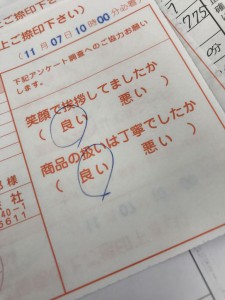 ご捺印下さい)
上ご捺印下さい)
(11月07日10時00分必着)
下記アンケート調査へのご協力お願い
します。
笑顔で挨拶してましたか
( 良い 悪い )
商品の扱いは丁寧でしたか
( 良い 悪い )
様
社
40-1
6611
775
0分